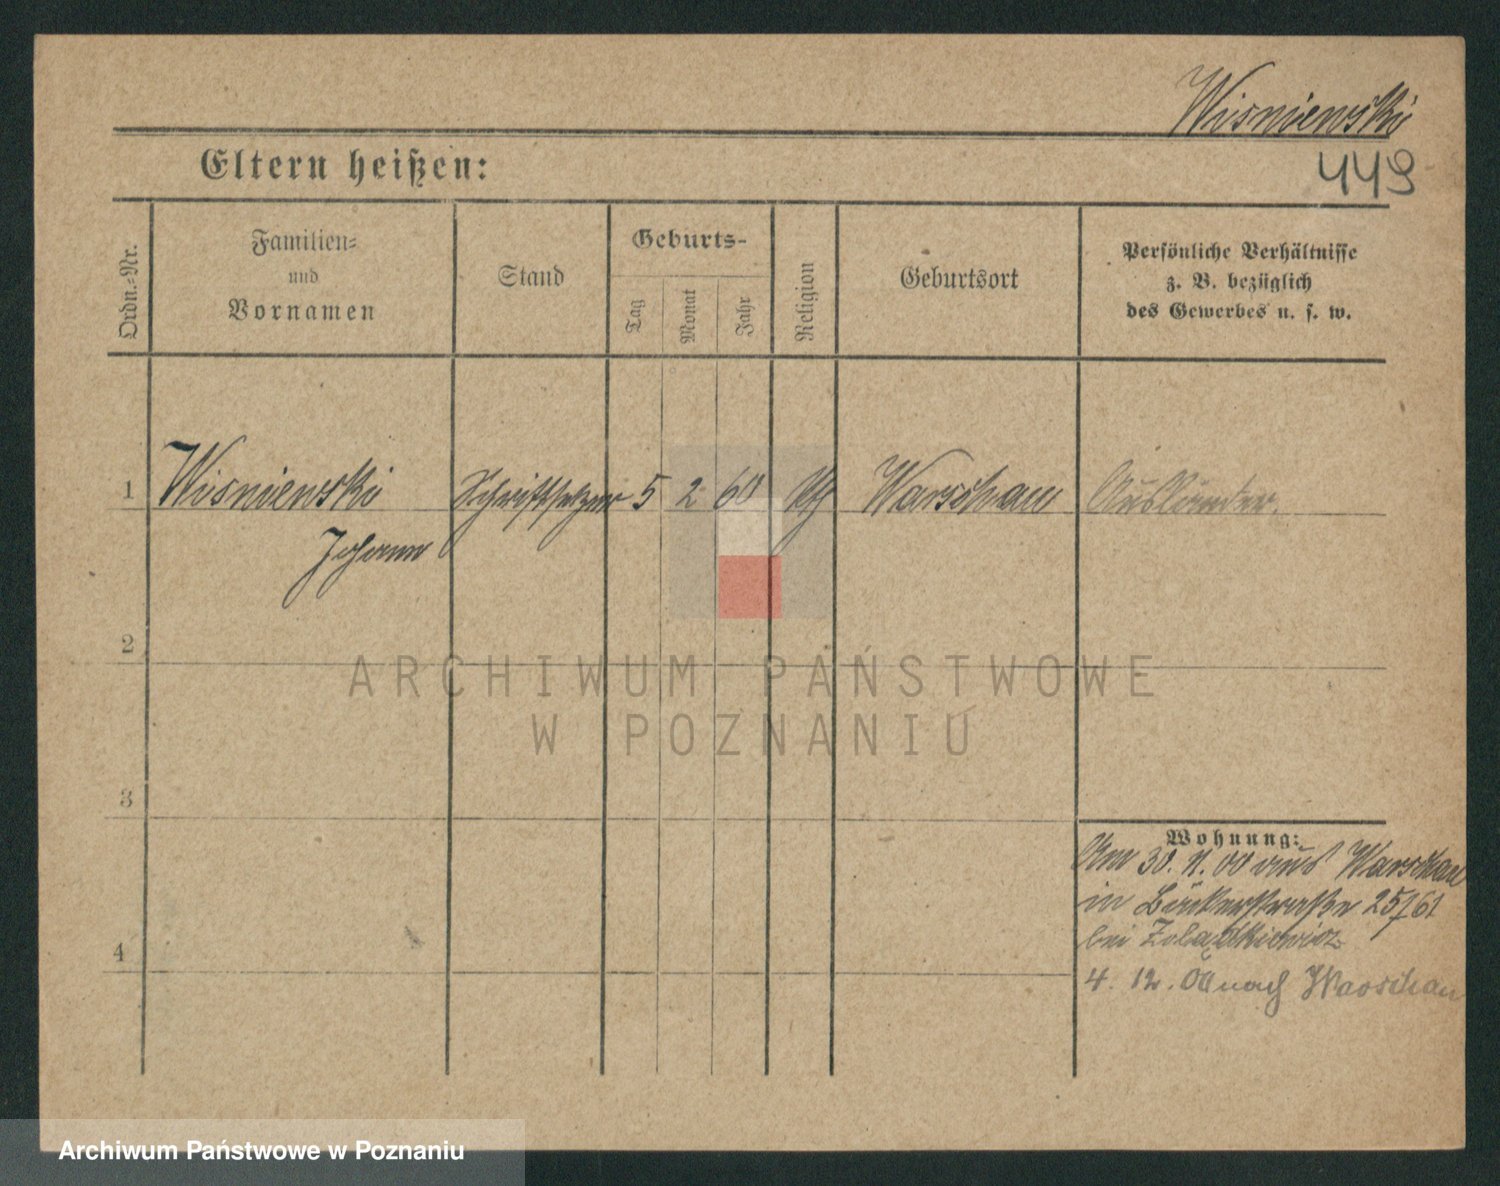 Wisniewski
Eltern heißen:
449
Ordn.-Nr.
Familien-
und
Vornamen
Stand
Geburts-
Tag
Monat
Jahr
Religion
Geburtsort
Persönliche Verhältnisse
z. B. bezüglich
des Gewerbes u. s. w.
1 Wisniewski Schriftsetzer 5 2 60 Warschau Ausländer.
Johann
2
ARCHIWUM PAŃSTWOWE
W POZNANIU
3
Wohnung:
Am 30. 11. 00 aus Warschau
in Bäckerstraße 25/61
bei
4
4. 12. 00 nach Warschau
Archiwum Państwowe w Poznaniu